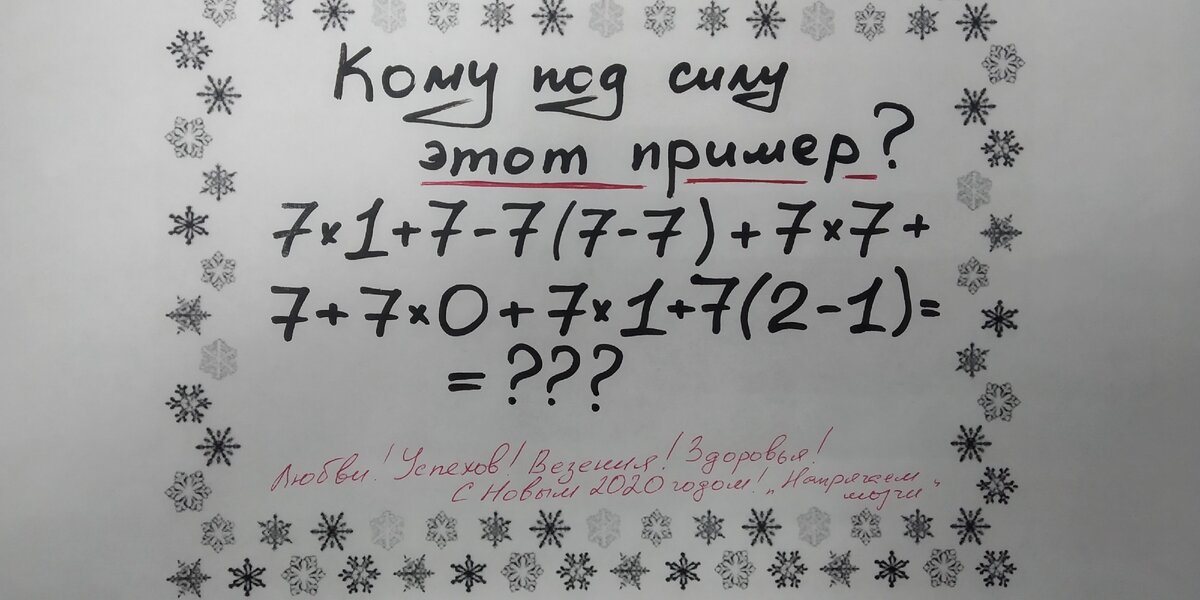 Кому под силу
этот пример?
7×1+7-7(7-7)+7×7+
7+7×0+7×1+7(2-1)=
=???
Любви! Успехов! Везения! Здоровья!
С Новым 2020 годом! „Напрягаем
мозги“